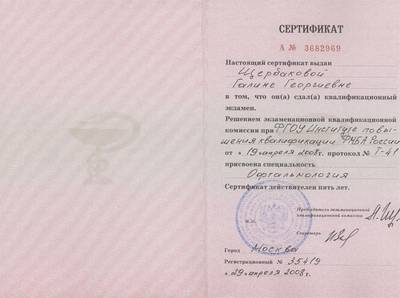 СЕРТИФИКАТ
А № 3682969
Настоящий сертификат выдан
Щербаковой
Галине Георгиевне
в том, что он(а) сдал(а) квалификационный
экзамен.
Решением экзаменационной квалификационной
комиссии при ФГОУ Институте повы-
шения квалификации ФМБА России
от « 19 апреля 2008г. протокол № Т-41
присвоена специальность
Офтальмология
Сертификат действителен пять лет.
Председатель экзаменационной
квалификационной комиссии
Секретарь
М.П.
Город Москва
Регистрационный № 35419
« 29 апреля 2008 г.